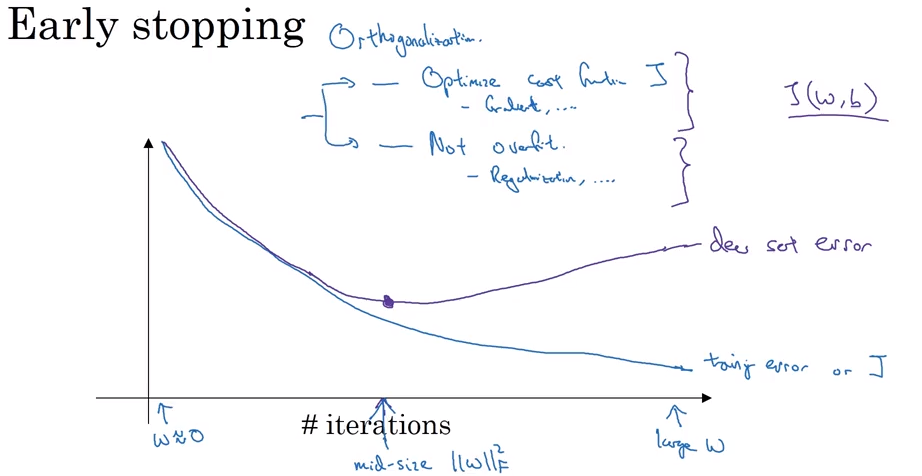 Early stopping
Orthogonalization.
— Optimize cost function J
- Gradient, ....
J(w,b)
— Not overfit.
- Regularization, ....
dev set error
training error or J
w≈0
# iterations
large w
mid-size ||w||²_F